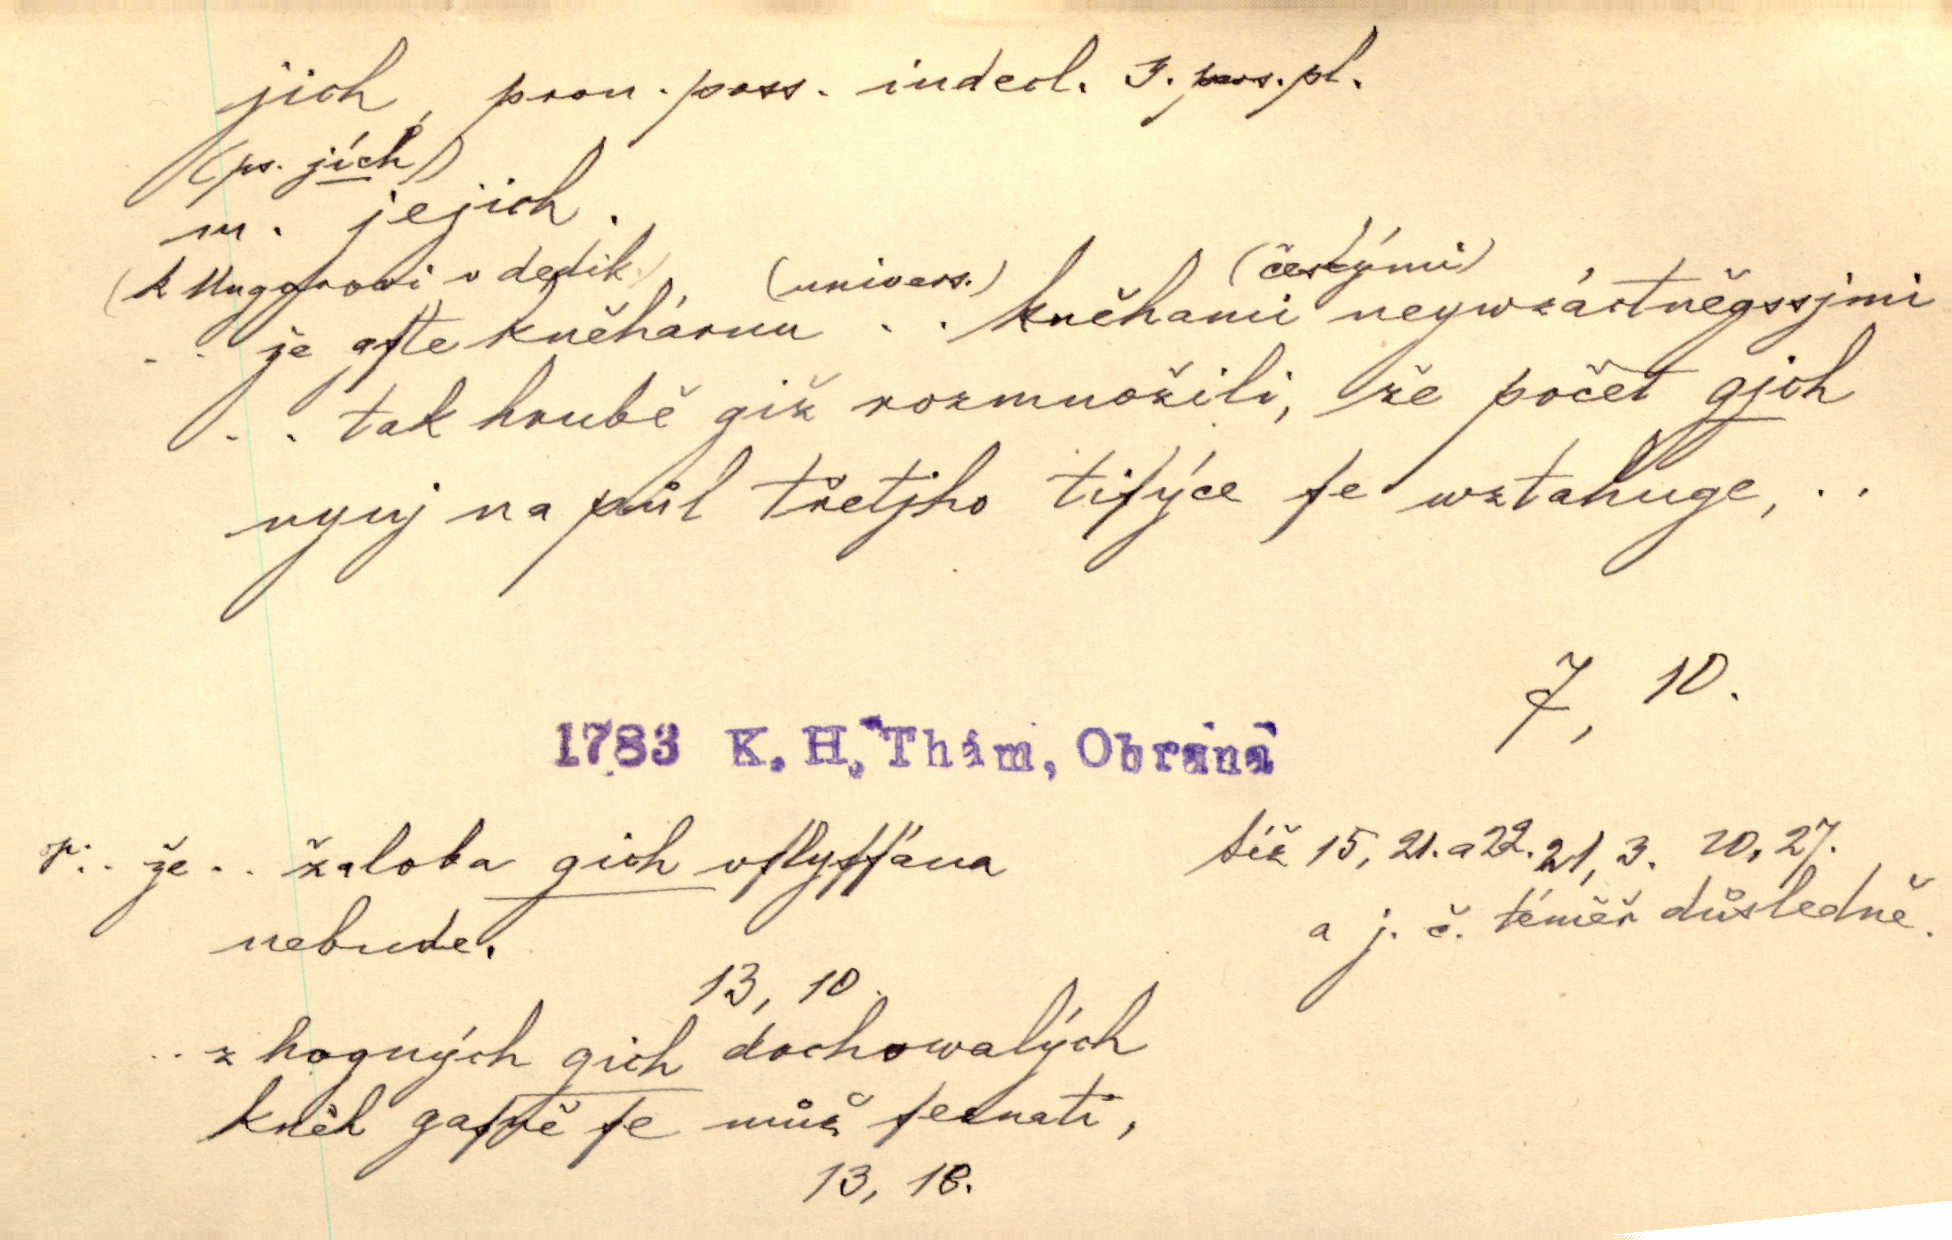 jich, pron. poss. indecl. 3. pers. pl.
(ps. jích)
m. jejich.
(k Unggrovi v dedik.) (univers.) (českými)
.. že gste kněhárnu .. kněhami neywzáctněgssjmi
.. tak hrubě giž rozmnožili, že počet gjch
nynj na půl třetjho tiſýce ſe wztahuge, ..
7, 10.
1783 K. H. Thám, Obrana
.. že .. žaloba gich vſlyſſána
nebude.
13, 10.
.. z hogných gich dochowalých
kněh gaſně ſe můž ſeznati,
13, 18.
též 15, 21. a 22. 21, 3. 20, 27.
a j. č. téměř důsledně.